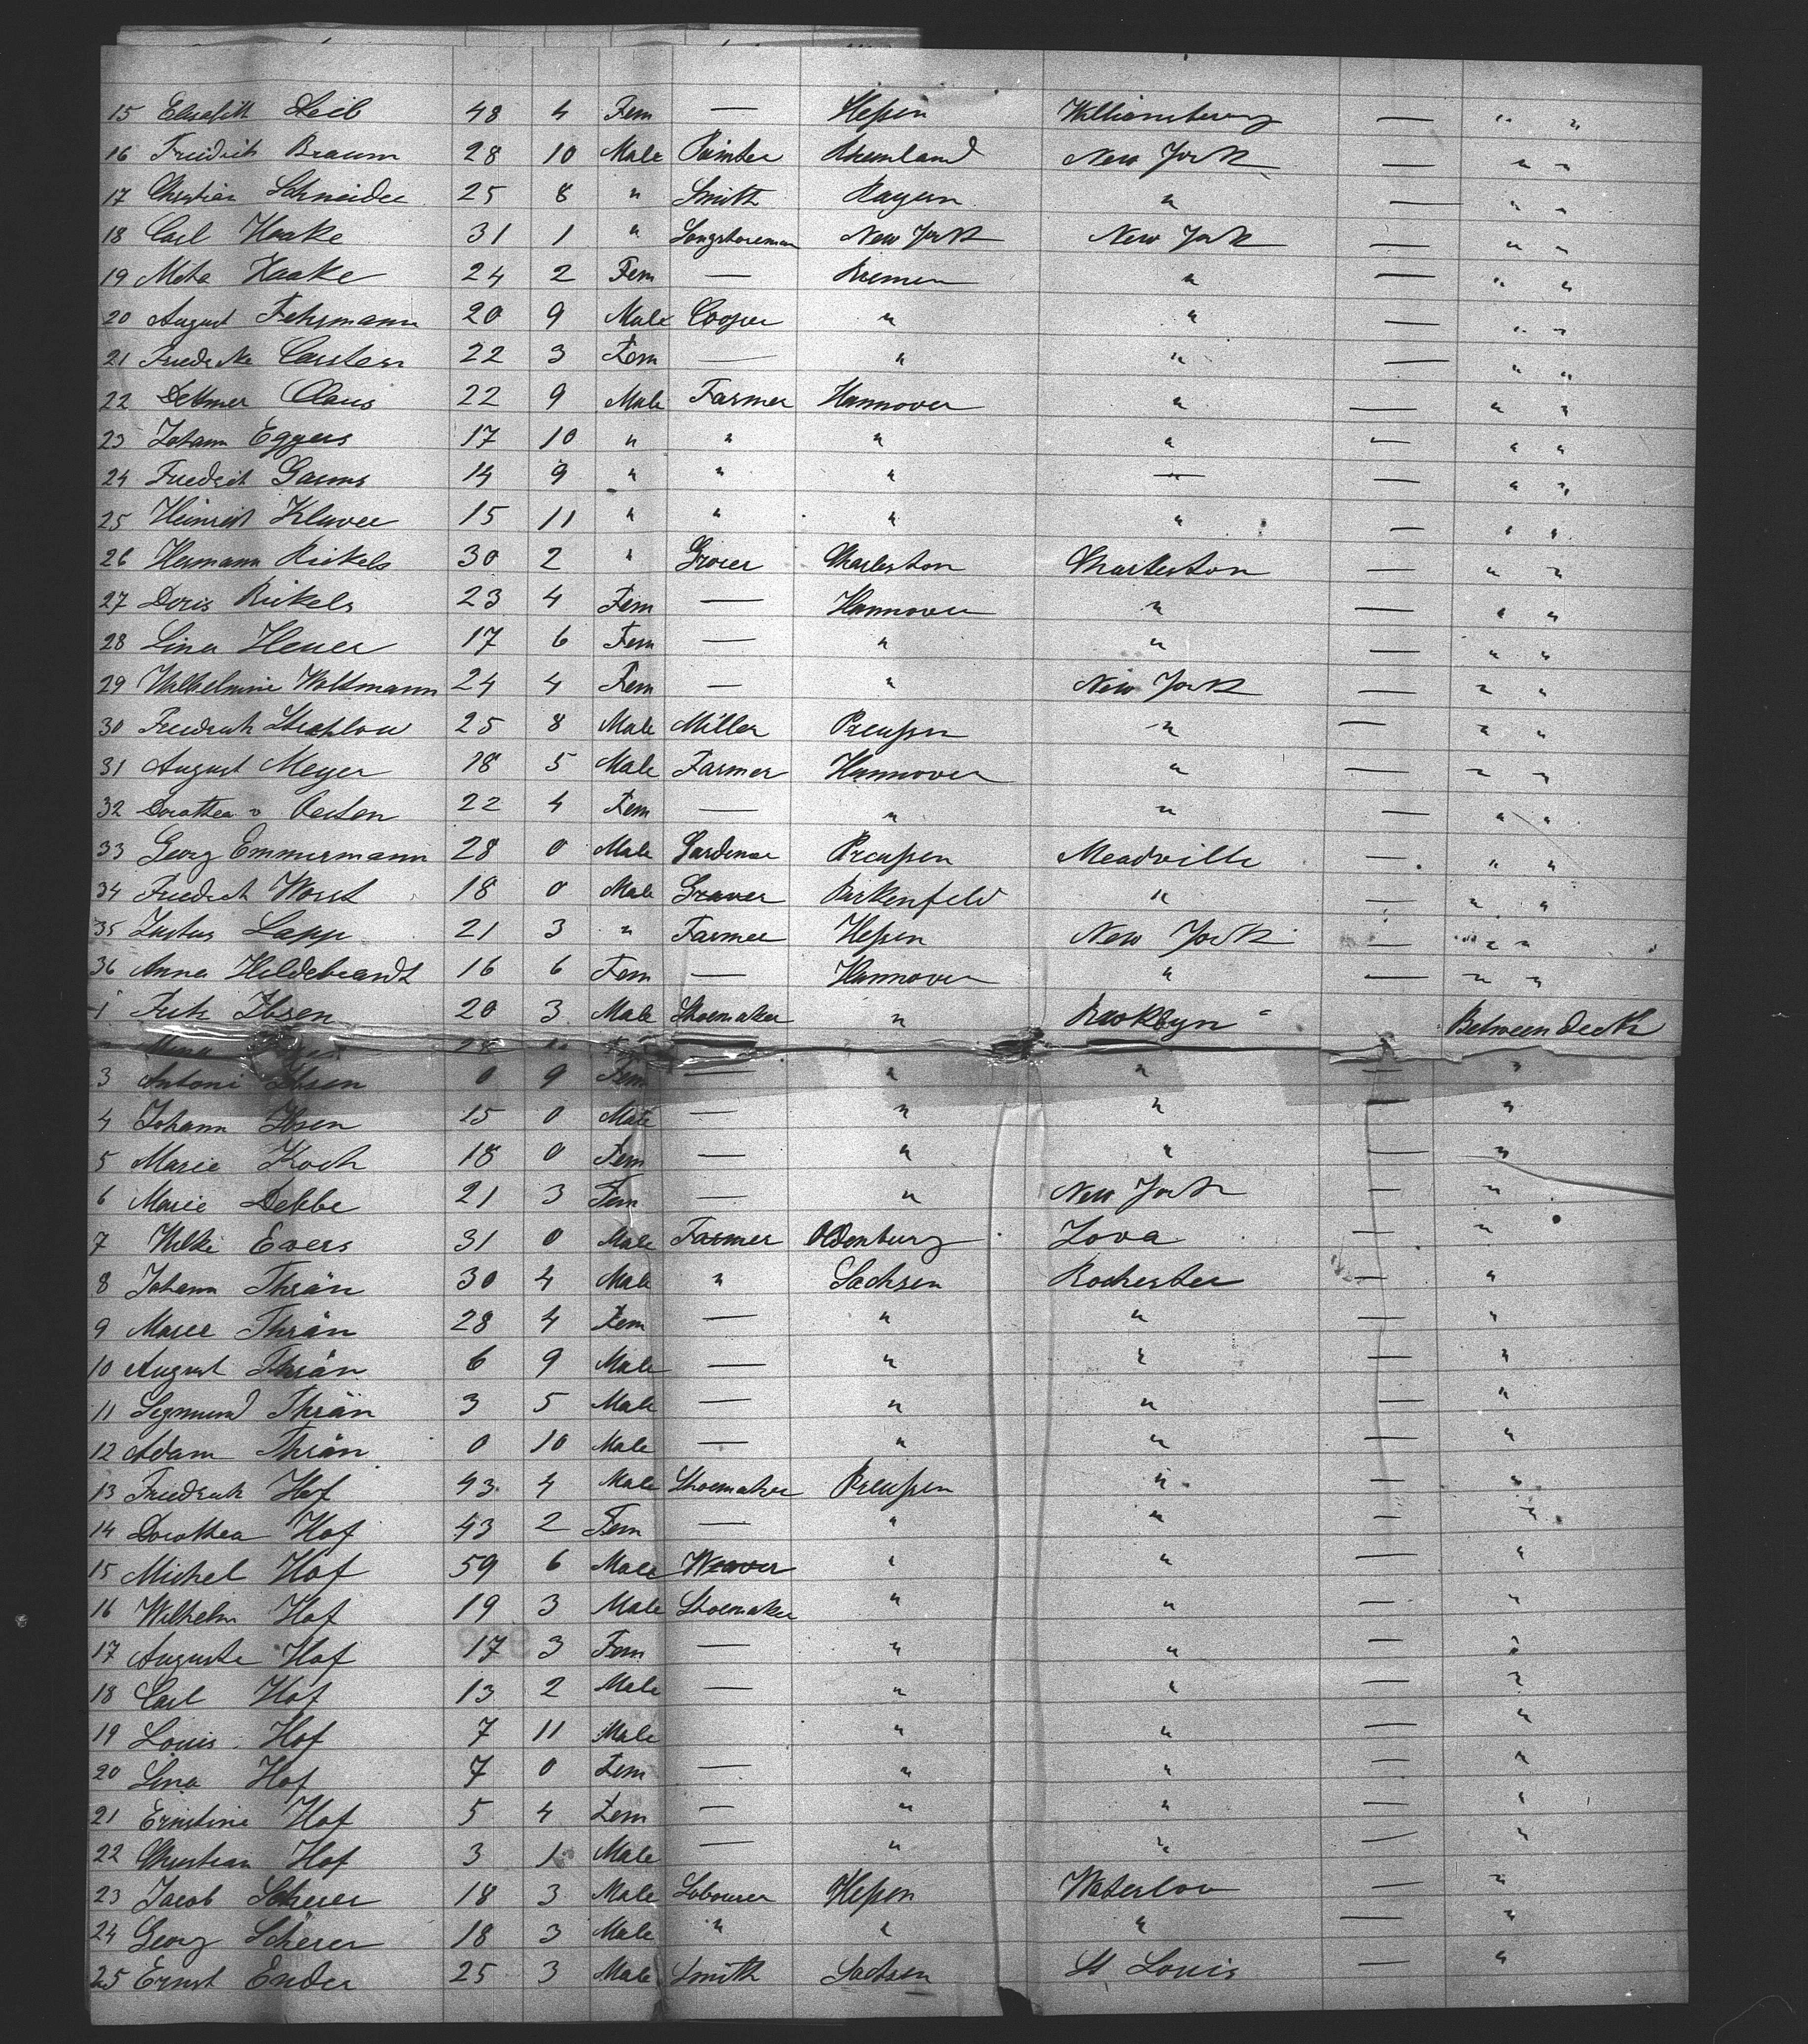 15 Elisabeth Deib 48 4 Fem — Heßen Williamsburg — " "
16 Friedrich Braum 28 10 Male Painter Rheinland New York — " "
17 Christian Schneider 25 8 " Smith Bayern " — " "
18 Carl Haake 31 1 " Longshoreman New York New York — " "
19 Meta Haake 24 2 Fem — Bremen " — " "
20 August Fehrmann 20 9 Male Cooper " " — " "
21 Friedrike Carsten 22 3 Fem — " " — " "
22 Dettmer Claus 22 9 Male Farmer Hannover " — " "
23 Johann Eggers 17 10 " " " " — " "
24 Friedrich Garms 14 9 " " " — " "
25 Heinrich Kluver 15 11 " " " " — " "
26 Hermann Rickels 30 2 " Grocer Charleston Charleston — " "
27 Doris Rickels 23 4 Fem — Hannover " — " "
28 Lina Heuer 17 6 Fem — " " — " "
29 Wilhelmine Woltmann 24 4 Fem — " New York — " "
30 Friedrich 25 8 Male Miller Preußen " — " "
31 August Meyer 18 5 Male Farmer Hannover " — " "
32 Dorothea v Oesten 22 4 Fem — " " — " "
33 Georg Emmermann 28 0 Male Gardener Preußen Meadville — " "
34 Friedrich Worst 18 0 Male Graver Birkenfeld " — " "
35 Justus Lapp 21 3 " Farmer Heßen New York — " "
36 Anna Hildebrandt 16 6 Fem — Hannover " — " "
1 Fritz Ibsen 20 3 Male Shoemaker " Brooklyn — Between deck
3 Antoni Ibsen 0 9 Fem — " " — "
4 Johann Ibsen 15 0 Male — " " — "
5 Marie Koch 18 0 Fem — " " — "
6 Marie Debbe 21 3 Fem — " New York — "
7 Wilke Evers 31 0 Male Farmer Oldenburg Iova — "
8 Johann Thrän 30 4 Male " Sachsen Rochester — "
9 Marie Thrän 28 4 Fem — " " — "
10 August Thrän 6 9 Male — " " — "
11 Segmund Thrän 3 5 Male — " " — "
12 Adam Thrän 0 10 Male — " " — "
13 Friedrich Hof 43 4 Male Shoemaker Preußen " — "
14 Dorothea Hof 43 2 Fem — " " — "
15 Michel Hof 59 6 Male Weaver " " — "
16 Wilhelm Hof 19 3 Male Shoemaker " " — "
17 Auguste Hof 17 3 Fem — " " — "
18 Carl Hof 13 2 Male — " " — "
19 Louis Hof 7 11 Male " " — "
20 Lina Hof 7 0 Fem — " " — "
21 Ernstine Hof 5 4 Fem — " " — "
22 Christian Hof 3 1 Male — " " — "
23 Jacob Scherer 18 3 Male Labourer Heßen Waterloo — "
24 Georg Scherer 18 3 Male " " " — "
25 Ernst Ender 25 3 Male Smith Sachsen St Louis — "